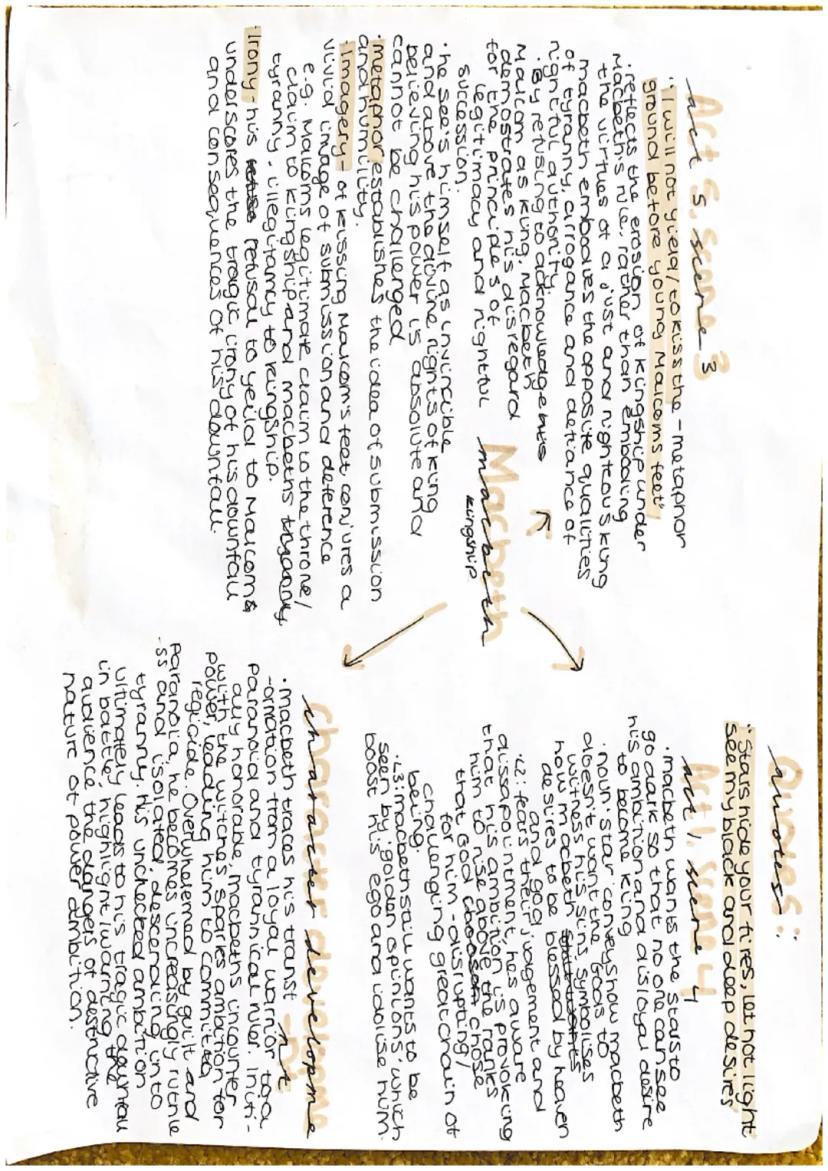 Quotes:
"Stars hide your fires, let not light
see my black and deep desires"
Act 1, scene 4
· macbeth wants the stars to
go dark so that no one can see
his ambition and disloyal desire
to become king
· noun: 'star' conveys how macbeth
doesn't want the Gods to
witness his sins, symbolises
how macbeth
desires to be blessed by heaven
and god
· L2: fears their judgement and
dissapointment, he's aware
that his ambition is provoking
him to rise above the ranks
that God chose
for him - disrupting/
challenging great chain of
being.
· L3: macbeth still wants to be
seen by 'golden opinions', which
boost his ego and idolise him.
Macbeth
kingship
Act 5, scene 3
· "I will not yield / to kiss the - metaphor
ground before young Malcom's feet"
· reflects the erosion of kingship under
Macbeth's rule, rather than emboding
the virtues of a just and righteous king
macbeth embodies the opposite qualities
of tyranny, arrogance and defiance of
rightful authority
· By refusing to acknowledge
Malcom as king, Macbeth
demostrates his disregard
for the principles of
legitimacy and rightful
succession.
· he see's himself as invincible
and above the divine rights of king
believing his power is absolute and
cannot be challenged
· metaphor establishes the idea of submission
and humility.
· Imagery - of kissing Malcom's feet conjures a
vivid image of submission and deference
e.g. Malcoms legitimate claim to the throne/
claim to kingship and macbeths
tyranny, illegitamcy to kingship.
· Irony - his refusal to yeild to Malcom
underscores the tragic irony of his downfall
and consequences of his downfall
character developme
-nt
· macbeth traces his transf
-ormation from a loyal warrior to a
paranoid and tyrannical ruler. Initi-
ally honorable, macbeths encounter
with the witches sparks ambition for
power, leading him to commit
regicide. Overwhelemed by guilt and
paranoia, he becomes increasingly ruthle
-ss and isolated, descending into
tyranny. His unchecked ambition
ultimately leads to his tragic downfall
in battle, highlight/warning the
audience the dangers of destructive
nature of power ambition.